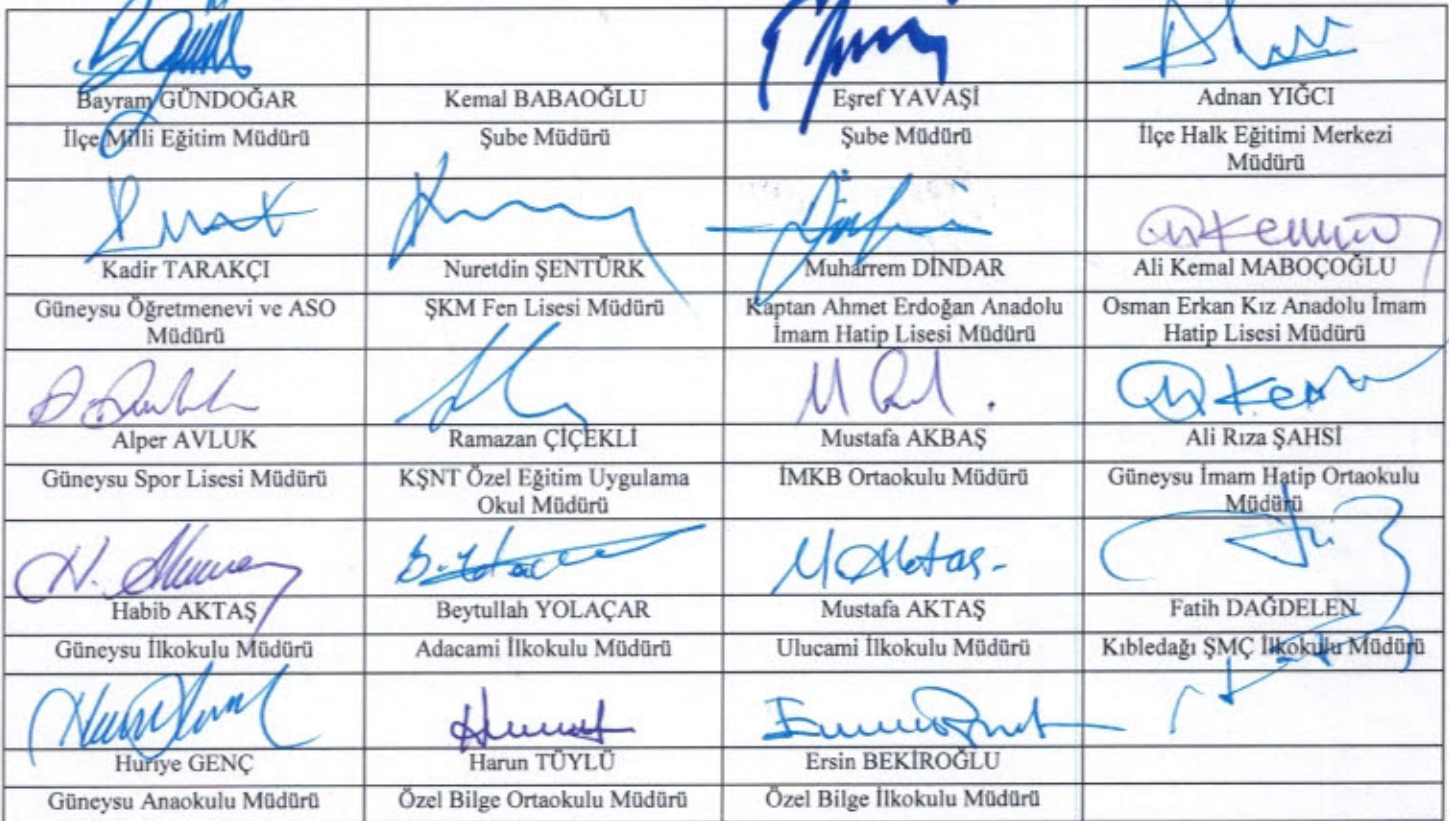 Bayram GÜNDOĞAR
Kemal BABAOĞLU
Eşref YAVAŞİ
Adnan YIĞCI
İlçe Milli Eğitim Müdürü
Şube Müdürü
Şube Müdürü
İlçe Halk Eğitimi Merkezi
Müdürü
Kadir TARAKÇI
Nuretdin ŞENTÜRK
Muharrem DİNDAR
Ali Kemal MABOÇOĞLU
Güneysu Öğretmenevi ve ASO
Müdürü
ŞKM Fen Lisesi Müdürü
Kaptan Ahmet Erdoğan Anadolu
İmam Hatip Lisesi Müdürü
Osman Erkan Kız Anadolu İmam
Hatip Lisesi Müdürü
Alper AVLUK
Ramazan ÇİÇEKLİ
Mustafa AKBAŞ
Ali Rıza ŞAHSİ
Güneysu Spor Lisesi Müdürü
KŞNT Özel Eğitim Uygulama
Okul Müdürü
İMKB Ortaokulu Müdürü
Güneysu İmam Hatip Ortaokulu
Müdürü
H.
M Aktaş
Habib AKTAŞ
Beytullah YOLAÇAR
Mustafa AKTAŞ
Fatih DAĞDELEN
Güneysu İlkokulu Müdürü
Adacami İlkokulu Müdürü
Ulucami İlkokulu Müdürü
Kıbledağı ŞMÇ İlkokulu Müdürü
Huriye GENÇ
Harun TÜYLÜ
Ersin BEKİROĞLU
Güneysu Anaokulu Müdürü
Özel Bilge Ortaokulu Müdürü
Özel Bilge İlkokulu Müdürü